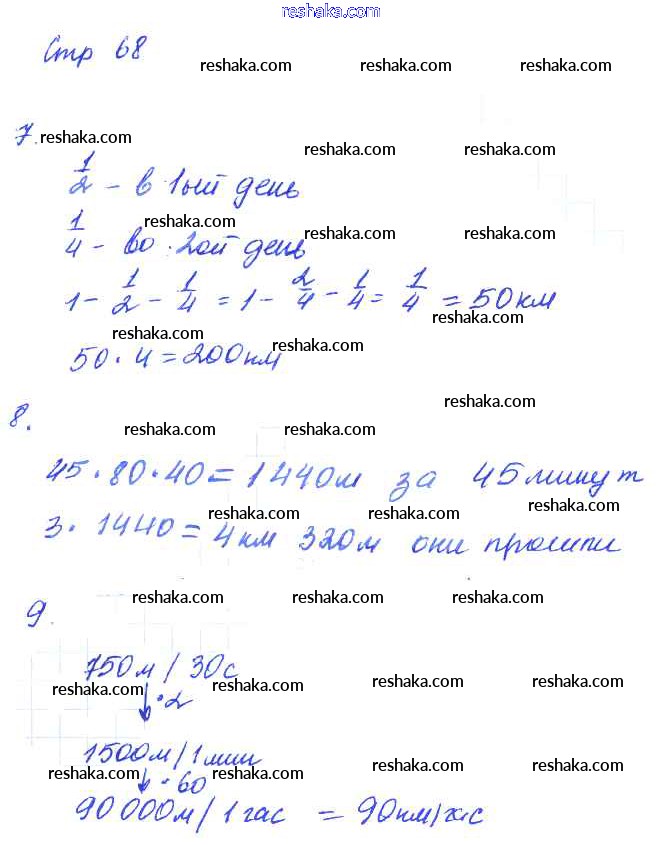 reshaka.com
Стр 68
reshaka.com reshaka.com reshaka.com
7. reshaka.com reshaka.com reshaka.com
1/2 - в 1ый день
reshaka.com reshaka.com reshaka.com
1/4 - во 2ой день
1 - 1/2 - 1/4 = 1 - 2/4 - 1/4 = 1/4 = 50км
reshaka.com reshaka.com reshaka.com
50 · 4 = 200км
reshaka.com
8. reshaka.com reshaka.com reshaka.com
45 · 80 · 40 = 1440м за 45 минут
reshaka.com reshaka.com reshaka.com
3 · 1440 = 4км 320м они прошли
9. reshaka.com reshaka.com reshaka.com
750м / 30с
reshaka.com reshaka.com reshaka.com reshaka.com
↓ · 2
1500м / 1мин
reshaka.com reshaka.com reshaka.com reshaka.com
↓ · 60
90 000м / 1 час = 90км/час